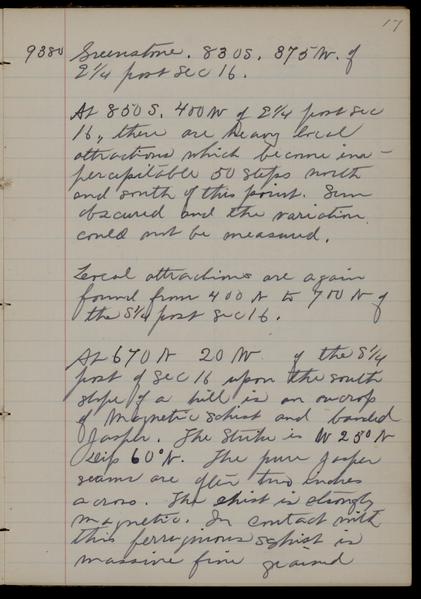 17
9380 Greenstone. 830S. 375W. of
2¼ post Sec 16.
At 850S. 400W of 2¼ post Sec
16, there are heavy local
attractions which become ina-
percepitable 50 steps north
and south of this point. Sun
obscured and the variation
could not be measured.
Local attractions are again
found from 400 N to 700 N of
the S¼ post Sec 16.
At 670 N 20 W of the S¼
post of Sec 16 upon the south
slope of a hill is an outcrop
of Magnetic schist and banded
Jasper. The Strike is W 25° N
Dip 60° N. The pure Jasper
seams are often two inches
across. The schist is strongly
magnetic. In contact with
this ferruginous schist is
massive fine grained